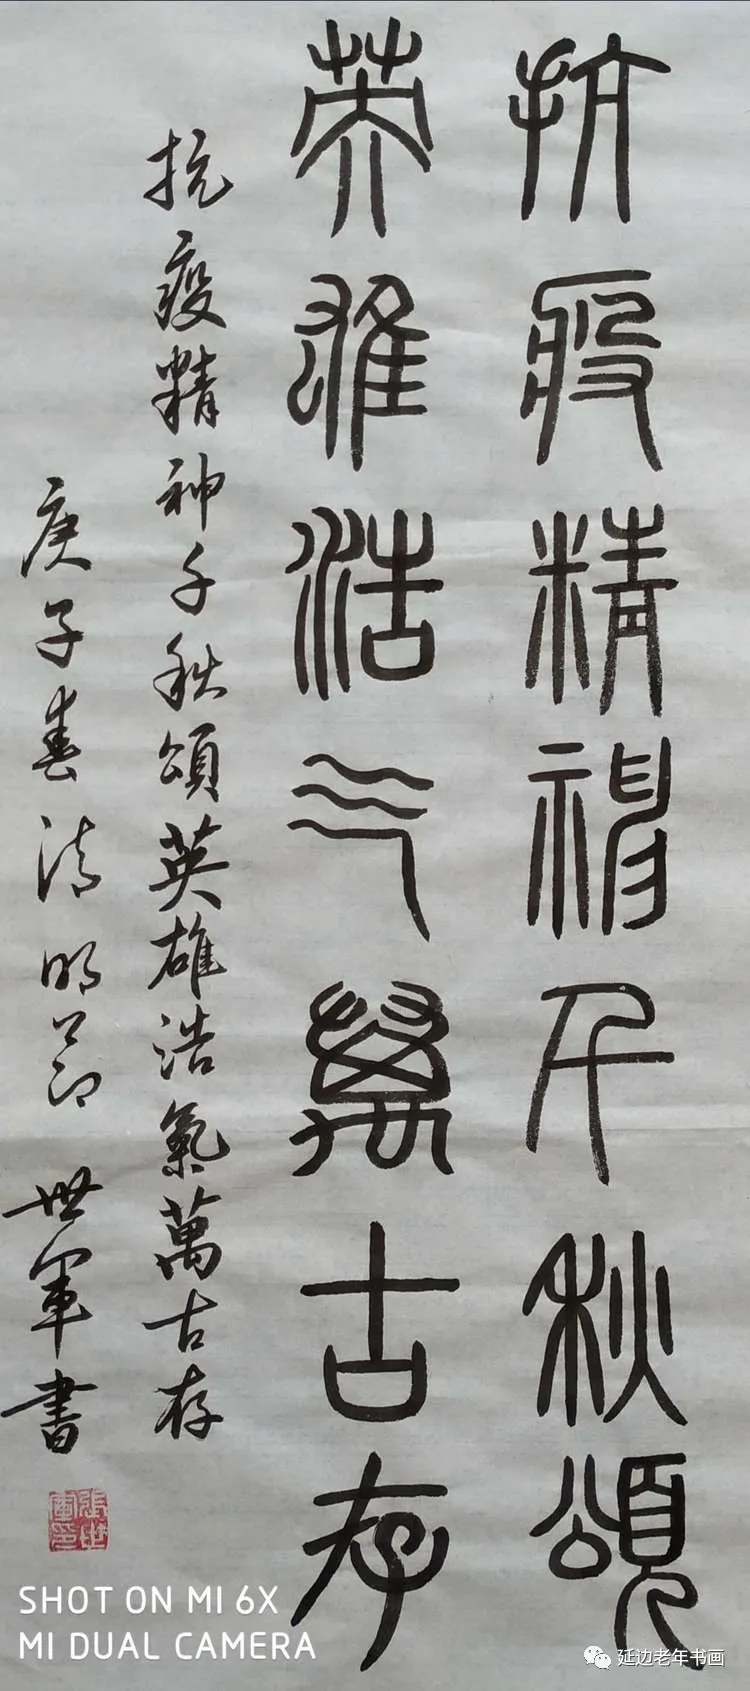 抗疫精神千秋頌
英雄浩气萬古存
抗疫精神千秋頌英雄浩氣萬古存
庚子春清明節 世軍書
張世軍印
SHOT ON MI 6X
MI DUAL CAMERA
延边老年书画